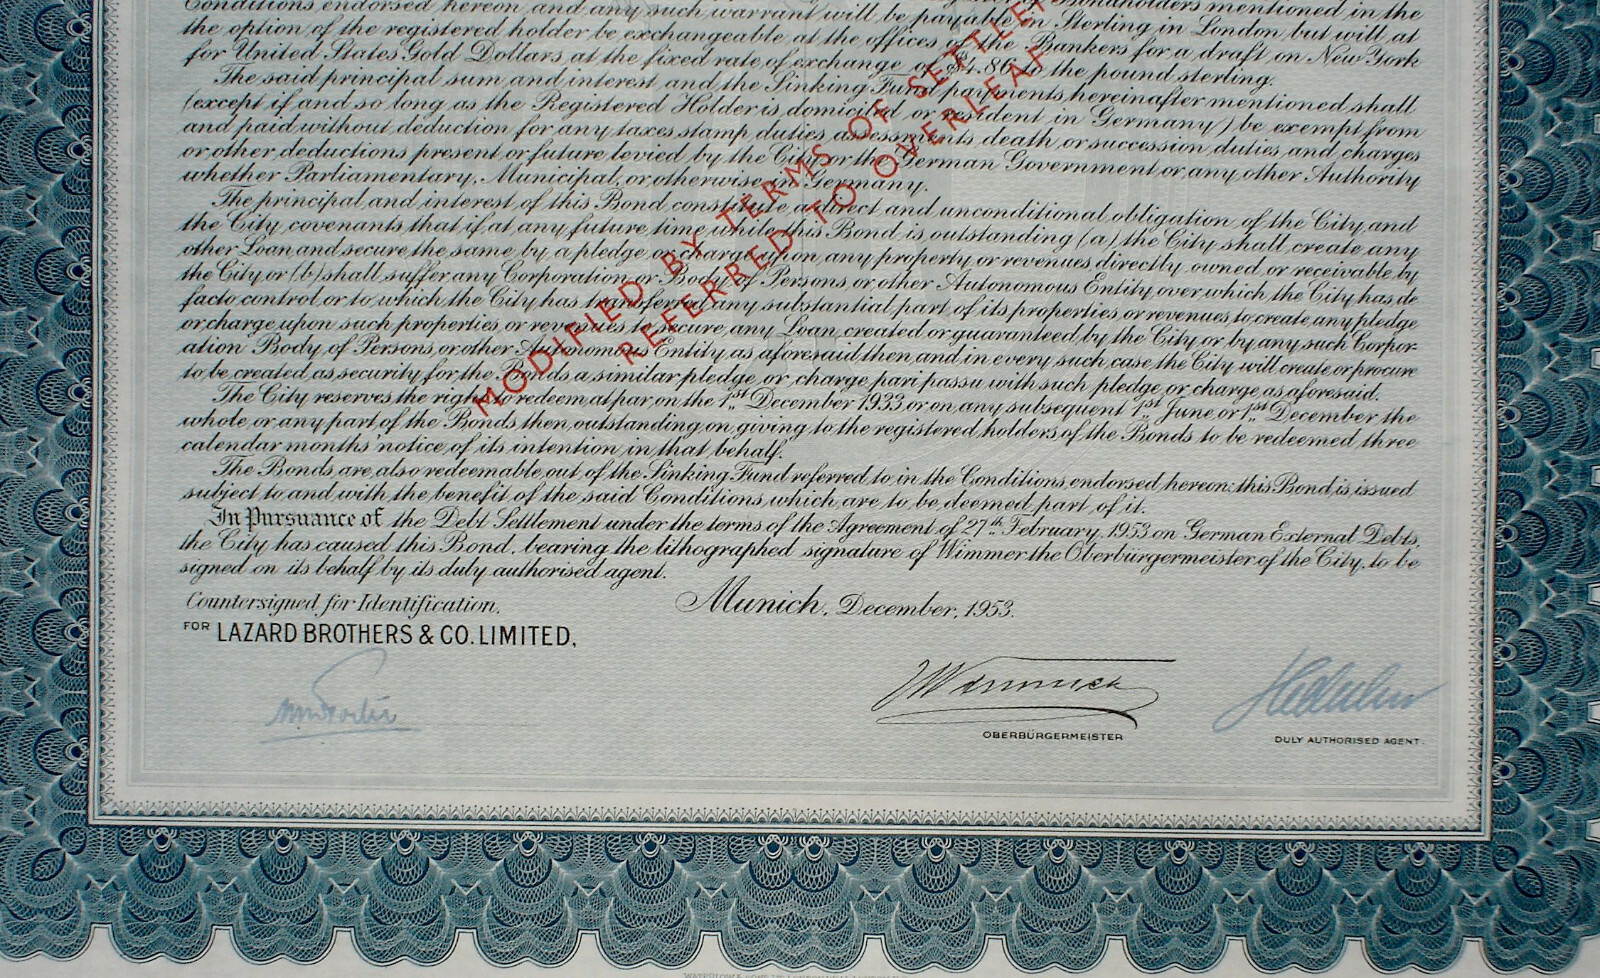 Conditions endorsed hereon and any such warrant will be payable in Sterling in London but will at
the option of the registered holder be exchangeable at the offices of the Bankers for a draft on New York
for United States Gold Dollars at the fixed rate of exchange of $4.86 to the pound sterling.
The said principal sum and interest and the Sinking Fund payments hereinafter mentioned shall
(except if and so long as the Registered Holder is domiciled or resident in Germany) be exempt from
and paid without deduction for any taxes stamp duties assessments death or succession duties and charges
or other deductions present or future levied by the City or the German Government or any other Authority
whether Parliamentary, Municipal, or otherwise in Germany.
The principal and interest of this Bond constitute a direct and unconditional obligation of the City and
the City covenants that if at any future time while this Bond is outstanding (a) the City shall create any
other Loan and secure the same by a pledge or charge upon any property or revenues directly owned or receivable by
the City or (b) shall suffer any Corporation or Body of Persons or other Autonomous Entity over which the City has de
facto control or to which the City has transferred any substantial part of its properties or revenues to create any pledge
or charge upon such properties or revenues to secure any Loan created or guaranteed by the City or by any such Corpor-
ation Body of Persons or other Autonomous Entity as aforesaid then and in every such case the City will create or procure
to be created as security for the Bonds a similar pledge or charge pari passu with such pledge or charge as aforesaid.
The City reserves the right to redeem at par on the 1st December 1933 or on any subsequent 1st June or 1st December the
whole or any part of the Bonds then outstanding on giving to the registered holders of the Bonds to be redeemed three
calendar months' notice of its intention in that behalf.
The Bonds are also redeemable out of the Sinking Fund referred to in the Conditions endorsed hereon: this Bond is issued
subject to and with the benefit of the said Conditions which are to be deemed part of it.
In Pursuance of the Debt Settlement under the terms of the Agreement of 27th February, 1953 on German External Debts,
the City has caused this Bond, bearing the lithographed signature of Wimmer the Oberbürgermeister of the City, to be
signed on its behalf by its duly authorised agent.
MODIFIED BY TERMS OF
REFERRED TO OVERLEAF
Countersigned for Identification,
Munich, December, 1953.
FOR LAZARD BROTHERS & CO. LIMITED,
Wimmer
OBERBÜRGERMEISTER
DULY AUTHORISED AGENT.